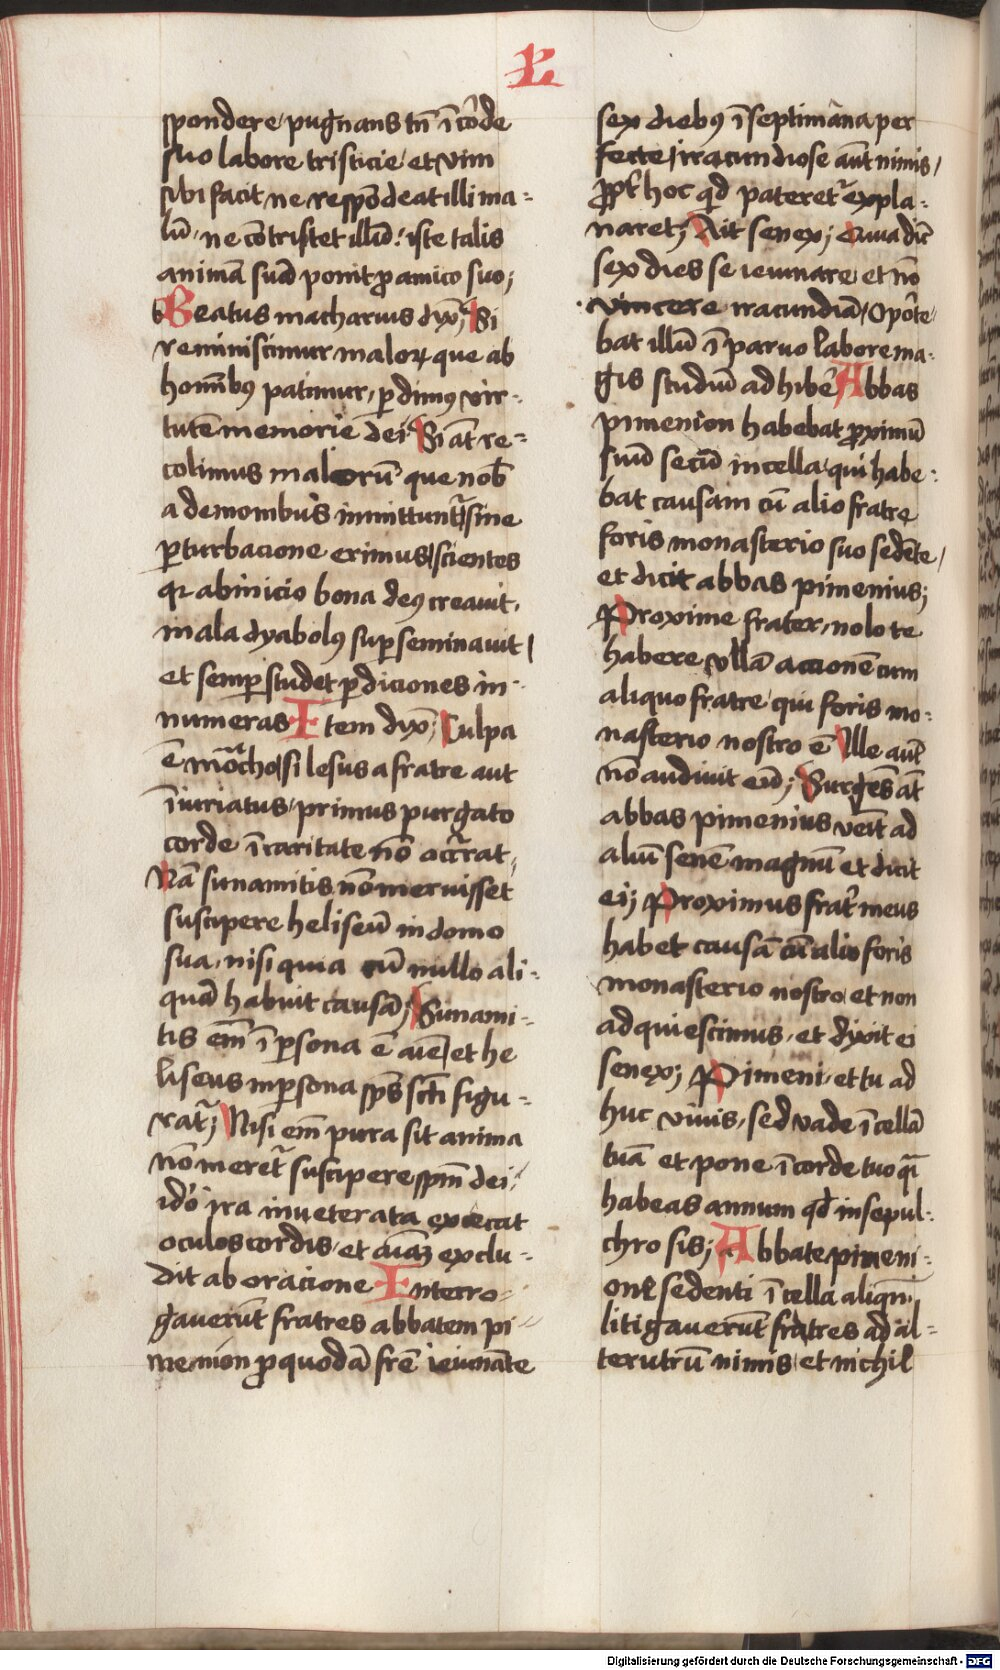 L
spondere pugnans tn̄ ī cōrde
suo labore tristicie et vim
sibi facit ne respōdeat illi ma-
lū, ne cōtristet illū: iste talis
animā suā ponit ꝓ amico suo;
Beatus macharius dyx̄; Si
reminiscimur maloꝝ que ab
homībꝰ patimur, ꝑdimꝰ vir-
tutē memorie dei Si āt re-
colimus malorū que nob̄
a demonibus inmittunt᷑ sine
ꝑturbacione erimus scientes
qꝛ ab inicio bona deꝰ creauit,
mala dyabolꝰ suꝑseminauit
et semꝑ studet ꝑdiciones in-
numeras Item dyx̄; Culpa
ē mōcho si lesus a fratre aut
īiuriatus primus purgato
corde ī caritate nō occ̄rat,
Nā sunamitis nō meruisset
suscipere heliseū in domo
sua, nisi quia cū nullo ali-
quā habuit causā; Sunami-
tis em̄ ī ꝑsona ē aīe et he
liseus in ꝑsona sp̄s scī figu-
rat᷑; Nisi em̄ pura sit anima
nō meret᷑ suscipere sp̄m dei
ido ira inueterata excecat
oculos cordis et aīaꝫ exclu-
dit ab oracione Interro-
gauerūt fratres abbatem pi
menion ꝓ quodā fr̄e ieiunāte
sex diebꝰ ī septimāna per
fecte, iracundiose aūt nimis,
ꝓpt hoc qd̄ pateret᷑ expla-
naret; Ait senex; Qui didic̄
sex dies se ieiunare et nō
vincere iracundiā, Oporte
bat illū ī paruo labore ma-
gis studiū adhibe᷑ Abbas
pimenion habebat ꝓximū
suū secū in cella qui habe-
bat causam cū alio fratre
foris monasterio suo sedēte,
et dicit abbas pimenius;
Proxime frater, nolo te
habere vllā accionē cum
aliquo fratre qui foris mo-
nasterio nostro ē Ille aut̄
nō audiuit eū; Surgēs āt
abbas pimenius veīt ad
aliū senē magnū et dicit
ei; Proximus frat᷑ meus
habet causā cū alio foris
monasterio nostro et non
adquiescimus, et dyxit ei
senex; Pimeni et tu ad
huc viuis, sed vade ī cellā
tuā et pone ī corde tuo qꝛ
habeas annum qd̄ in sepul-
chro sis; Abbate pimeni-
one sedenti ī cella aliqn̄
litigauerūt fratres ad al-
terutrū nimis et nichil
Digitalisierung gefördert durch die Deutsche Forschungsgemeinschaft - DFG